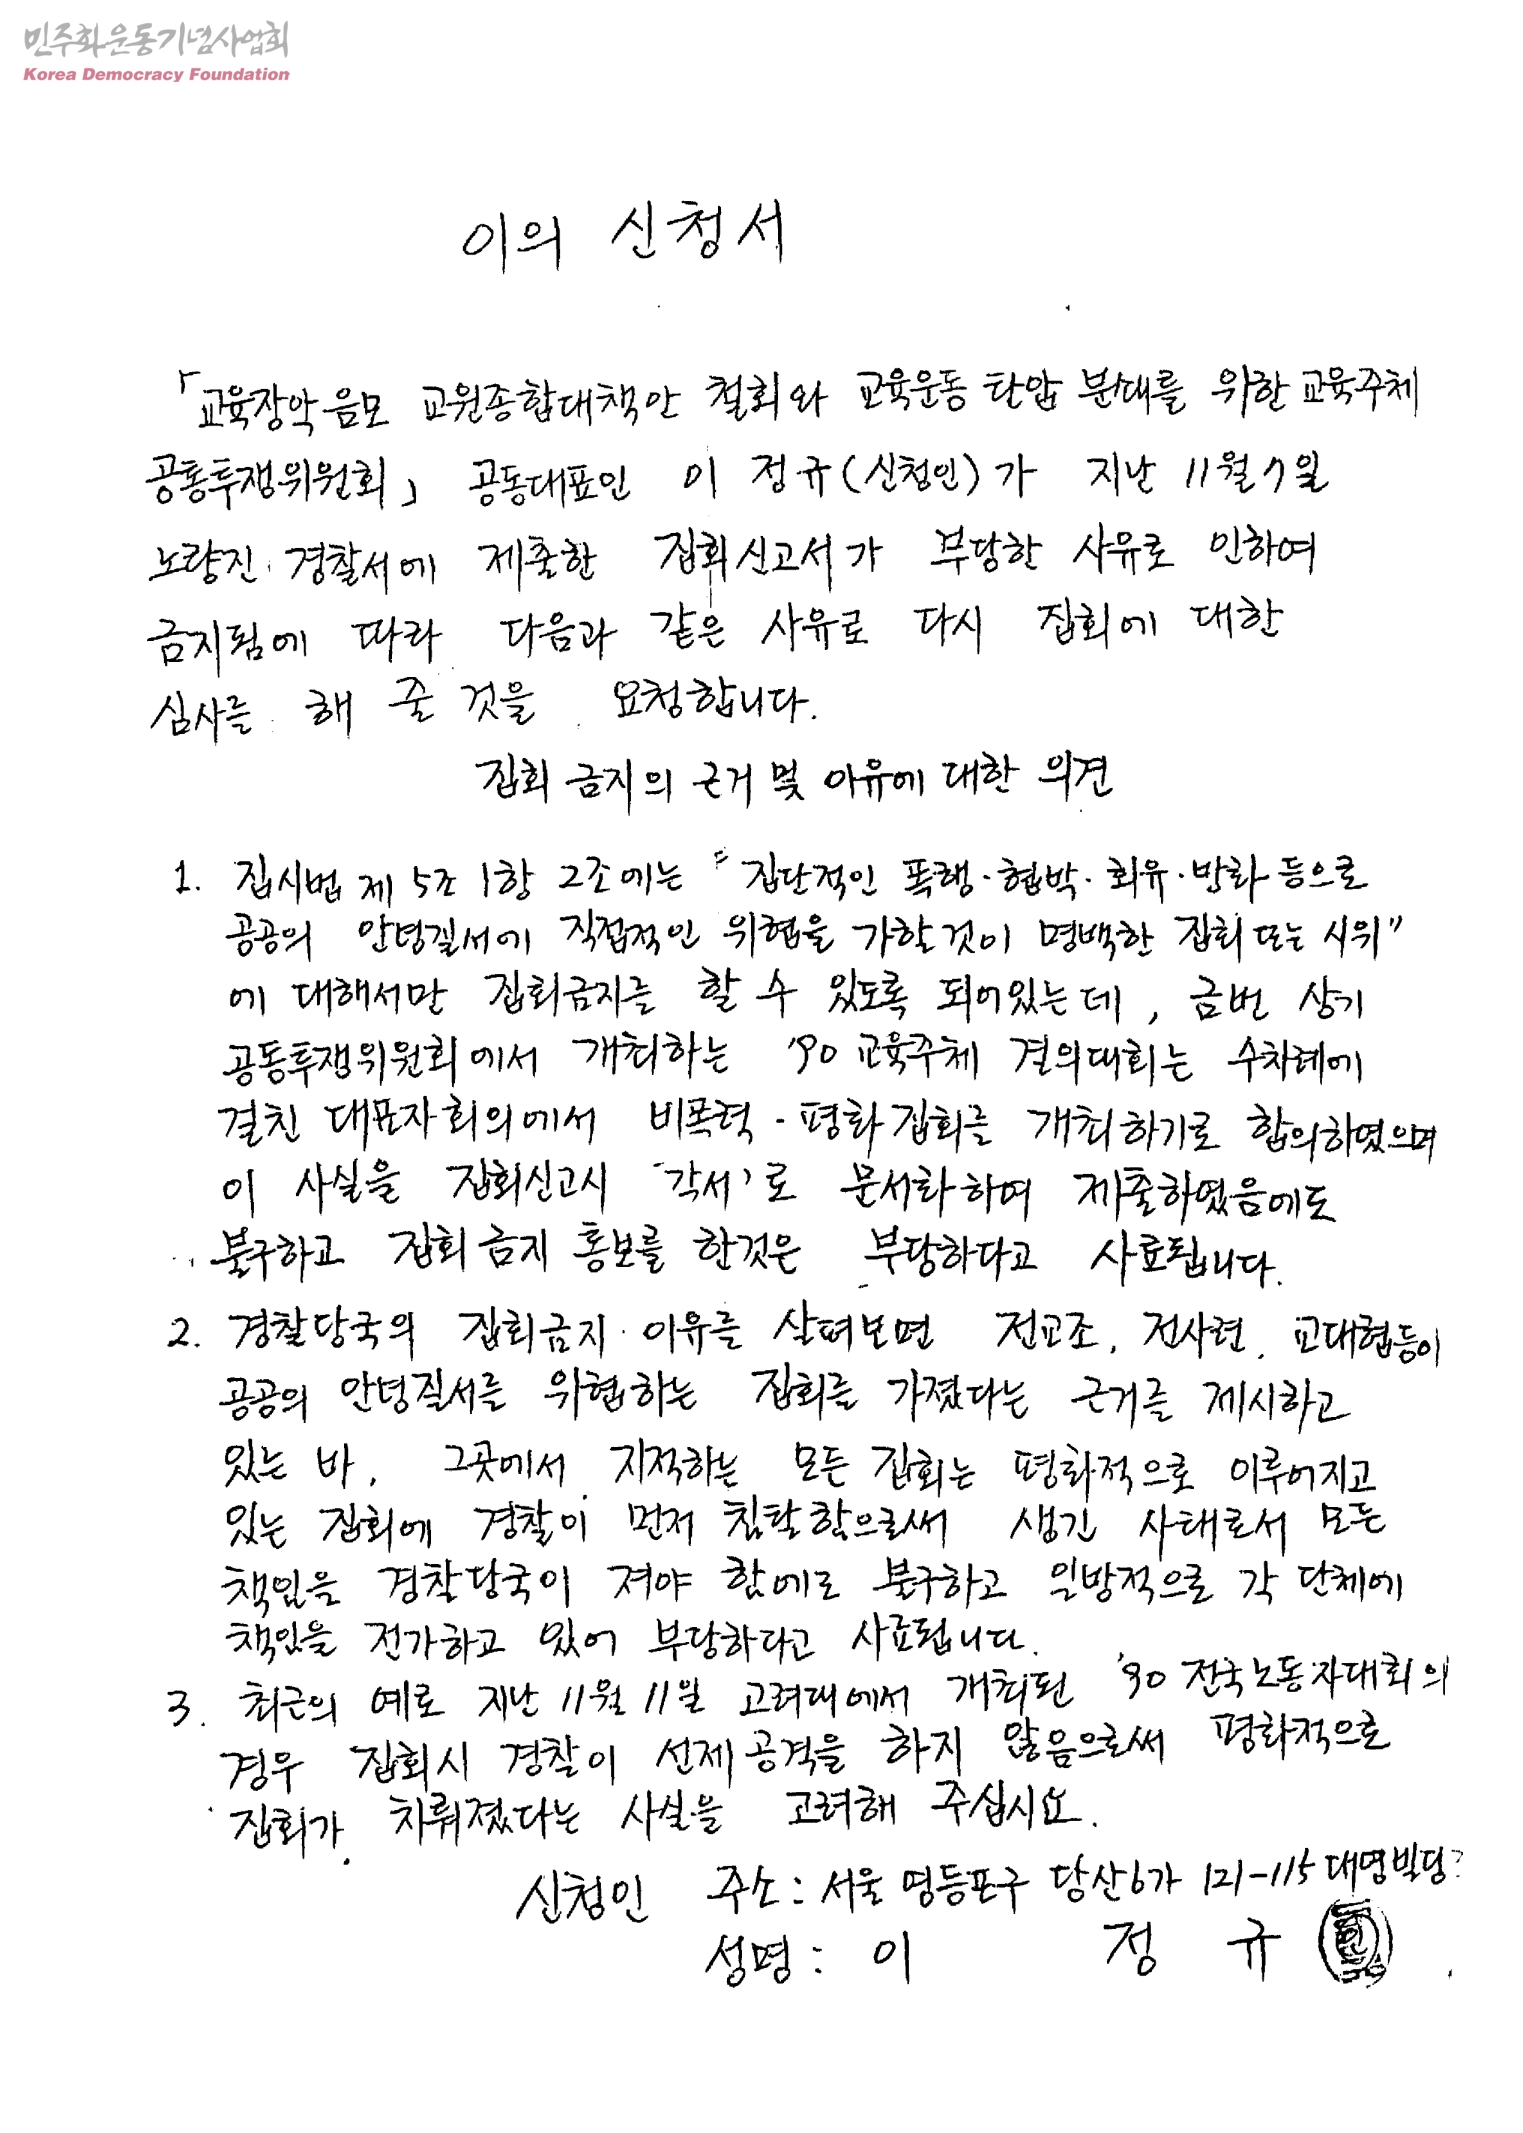 민주화운동기념사업회
Korea Democracy Foundation
이의 신청서
「교육장악음모 교원종합대책안 철회와 교육운동 탄압 분쇄를 위한 교육주체
공동투쟁위원회」 공동대표인 이 정규(신청인)가 지난 11월 7일
노량진 경찰서에 제출한 집회신고서가 부당한 사유로 인하여
금지됨에 따라 다음과 같은 사유로 다시 집회에 대한
심사를 해 줄 것을 요청합니다.
집회 금지의 근거 및 이유에 대한 의견
1. 집시법 제 5조 1항 2조에는 "집단적인 폭행·협박·회유·방화 등으로
공공의 안녕질서에 직접적인 위협을 가할것이 명백한 집회 또는 시위"
에 대해서만 집회금지를 할 수 있도록 되어있는데, 금번 상기
공동투쟁위원회에서 개최하는 '90 교육주체 결의대회는 수차례에
걸친 대표자회의에서 비폭력·평화집회를 개최하기로 합의하였으며
이 사실을 집회신고시 '각서'로 문서화하여 제출하였음에도
불구하고 집회 금지 통보를 한것은 부당하다고 사료됩니다.
2. 경찰당국의 집회금지 이유를 살펴보면 전교조, 전사련, 교대협등이
공공의 안녕질서를 위협하는 집회를 가졌다는 근거를 제시하고
있는 바, 그곳에서 지적하는 모든 집회는 평화적으로 이루어지고
있는 집회에 경찰이 먼저 침탈함으로써 생긴 사태로서 모든
책임을 경찰당국이 져야 함에도 불구하고 일방적으로 각 단체에
책임을 전가하고 있어 부당하다고 사료됩니다.
3. 최근의 예로 지난 11월 11일 고려대에서 개최된 '90 전국노동자대회의
경우 집회시 경찰이 선제공격을 하지 않음으로써 평화적으로
집회가 치뤄졌다는 사실을 고려해 주십시요.
신청인 주소 : 서울 영등포구 당산6가 121-115 대영빌딩
성명 : 이 정 규